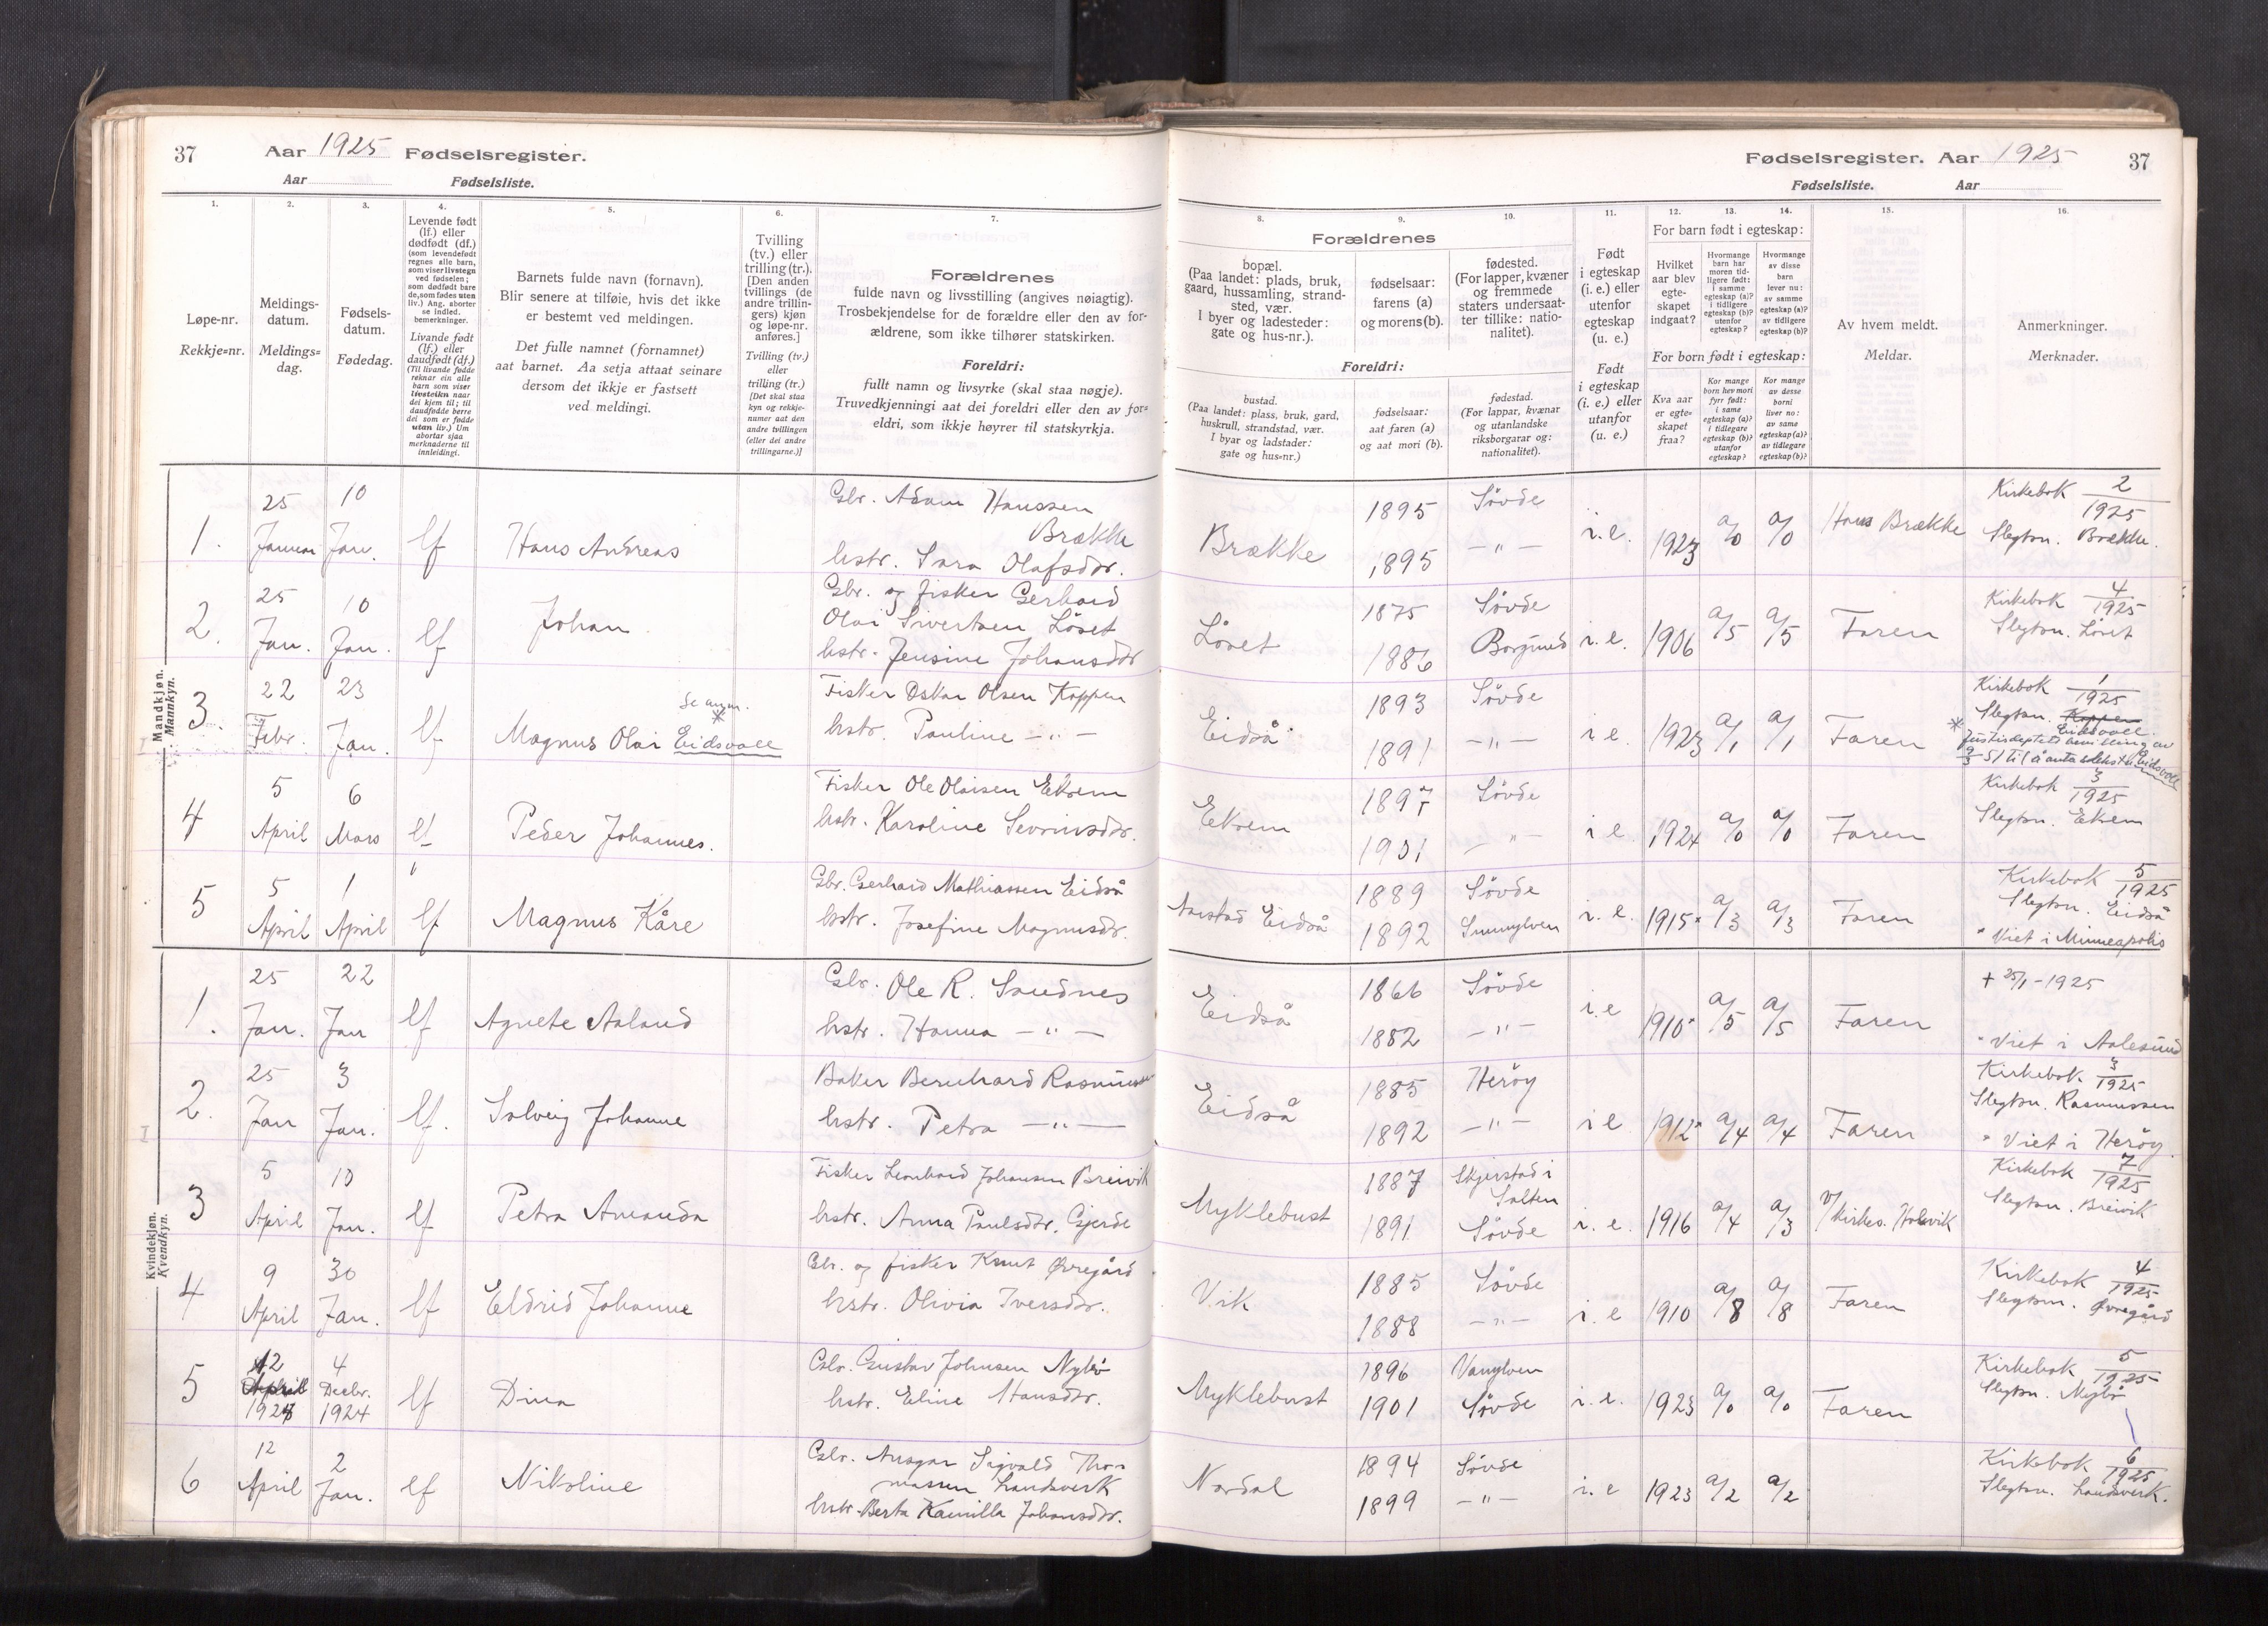 37 Aar 1925 Fødselsregister.
Aar Fødselsliste.
1. 2. 3. 4. 5. 6. 7.
Løpe-nr.
Rekkje=nr.
Meldings-
datum.
Meldings=
dag.
Fødsels-
datum.
Fødedag.
Levende født
(lf.) eller
dødfødt (df.)
(som levendefødt
regnes alle barn,
som viser livstegn
ved fødselen;
som dødfødt bare
de, som fødes uten
liv.) Ang. aborter
se indled.
bemerkninger.
Livande født
(lf.) eller
daudfødt (df.)
(Til livande fødde
reknar ein alle
barn som viser
livsteikn naar
dei kjem til; til
daudfødde berre
dei som er fødde
utan liv.) Um
abortar sjaa
merknaderne til
innleidingi.
Barnets fulde navn (fornavn).
Blir senere at tilføie, hvis det ikke
er bestemt ved meldingen.
Det fulle namnet (fornamnet)
aat barnet. Aa setja attaat seinare
dersom det ikkje er fastsett
ved meldingi.
Tvilling
(tv.) eller
trilling (tr.).
[Den anden
tvillings (de
andre trillin-
gers) kjøn
og løpe-nr.
anføres.]
Tvilling (tv.)
eller
trilling (tr.)
[Det skal staa
kyn og rekkje-
numer aat den
andre tvillingen
(eller dei andre
trillingarne.)]
Forældrenes
fulde navn og livsstilling (angives nøiagtig).
Trosbekjendelse for de forældre eller den av for-
ældrene, som ikke tilhører statskirken.
Foreldri:
fullt namn og livsyrke (skal staa nøgje).
Truvedkjenningi aat dei foreldri eller den av for=
eldri, som ikkje høyrer til statskyrkja.
Mandkjøn.
Mannkyn.
1. 25 Januar 10 Jan. lf Hans Andreas
Gbr. Adam Hanssen
Brække
hstr. Sara Olafsdtr.
2. 25 Jan. 10 Jan. lf Johan
Gbr. og fisker Gerhard
Olai Sivertsen Løset
hstr. Jensine Johansdtr
3. 22 Febr. 23 Jan. lf Magnus Olai Eidsvoll
Se anm.
*
Fisker Oskar Olsen Koppen
hstr. Pauline —"—
4 5 April 6 Mars lf Peder Johannes.
Fisker Ole Olaisen Ekrem
hstr. Karoline Sevrinsdtr.
5 5 April 1 April lf Magnus Kåre
Gbr. Gerhard Mathiassen Eidså
hstr. Josefine Magnusdtr.
Kvindekjøn.
Kvendkyn.
1. 25 Jan. 22 Jan lf Agnete Aaland
Gbr. Ole R. Sandnes
hstr. Hanna —"—
2. 25 Jan 3 Jan. lf. Solveig Johanne
Baker Bernhard Rasmussen
hstr. Petra —"—
3 5 April 10 Jan. lf Petra Amanda
Fisker Leonhard Johansen Breivik
hstr. Anna Paulsdtr. Gjerde
4 9 April 30 Jan. lf Eldrid Johanne
Gbr. og fisker Knut Øvregård
hstr. Olivia Iversdtr.
5 12 April 1924 4 Decbr. 1924 lf Dina
Gbr. Gustav Johnsen Nybø
hstr. Eline Hansdtr.
6 12 April 2 Jan. lf Nikoline
Gbr. Ansgar Sigvald Tho-
massen Landsverk
hstr. Berta Kamilla Johansdtr.
Fødselsregister. Aar 1925 37
Fødselsliste. Aar
8. 9. 10. 11. 12. 13. 14. 15. 16.
Forældrenes
bopæl.
(Paa landet: plads, bruk,
gaard, hussamling, strand-
sted, vær.
I byer og ladesteder:
gate og hus-nr.).
fødselsaar:
farens (a)
og morens (b).
fødested.
(For lapper, kvæner
og fremmede
staters undersaat-
ter tillike: natio-
nalitet).
Foreldri:
bustad.
(Paa landet: plass, bruk, gard,
huskrull, strandstad, vær.
I byar og ladstader:
gate og hus=nr.)
fødselsaar:
aat faren (a)
og aat mori (b).
fødestad.
(For lappar, kvænar
og utanlandske
riksborgarar og:
nationalitet).
Født
i egteskap
(i. e.) eller
utenfor
egteskap
(u. e.)
Født
i egteskap
(i. e.) eller
utanfor
(u. e.)
For barn født i egteskap:
Hvilket
aar blev
egte-
skapet
indgaat?
Hvormange
barn har
moren tid-
ligere født:
i samme
egteskap (a)?
i tidligere
egteskap (b)?
utenfor
egteskap?
Hvormange
av disse
barn
lever nu:
av samme
egteskap (a)?
av tidligere
egteskap (b)?
For born født i egteskap:
Kva aar
er egte=
skapet
fraa?
Kor mange
born hev mori
fyrr født:
i same
egteskap (a)?
i tidlegare
egteskap (b)?
utanfor
egteskap?
Kor mange
av desse
borni
liver no:
av same
egteskap (a)?
av tidlegare
egteskap (b)?
Av hvem meldt.
Meldar.
Anmerkninger.
Merknader.
Brække 1895 1895 Søvde —"— i.e. 1923 a/0 a/0 Hans Brække
Kirkebok 2/1925
Slegtsn. Brække.
Løset 1875 1886 Søvde Borgund i.e. 1906 a/5 a/5 Faren
Kirkebok 4/1925
Slegtsn. Løset
Eidså 1893 1891 Søvde —"— i.e. 1923 a/1 a/1 Faren
Kirkebok 1/1925
Slegtsn. Koppen
Eidsvoll.
* Justisdeptets bevilling av
9/3 51 til å anta slektsn. Eidsvoll
Ekrem 1897 1901 Søvde —"— i.e 1924 a/0 a/0 Faren
Kirkebok 3/1925
Slegtsn. Ekrem
Aarstad Eidså 1889 1892 Søvde Sunnylven i.e. 1915* a/3 a/3 Faren
Kirkebok 5/1925
Slegtsn. Eidså
* Viet i Minneapolis
Eidså 1866 1882 Søvde —"— i.e 1910* a/5 a/5 Faren
+ 25/1-1925
* Viet i Aalesund
Eidså 1885 1892 Herøy —"— i.e 1912* a/4 a/4 Faren
Kirkebok 3/1925
Slegtsn. Rasmussen
* Viet i Herøy.
Myklebust 1887 1891 Skjerstad i
Salten
Søvde i.e. 1916 a/4 a/3 v/ Kirkes. Holsvik
Kirkebok 7/1925
Slegtsn. Breivik
Vik 1885 1888 Søvde —"— i.e 1910 a/8 a/8 Faren
Kirkebok 4/1925
Slegtsn. Øvregård
Myklebust 1896 1901 Vanylven Søvde i.e. 1923 a/0 a/0 Faren
Kirkebok 5/1925
Slegtsn. Nybø
Nordal 1894 1899 Søvde —"— i.e 1923 a/2 a/2
Kirkebok 6/1925
Slegtsn. Landsverk.